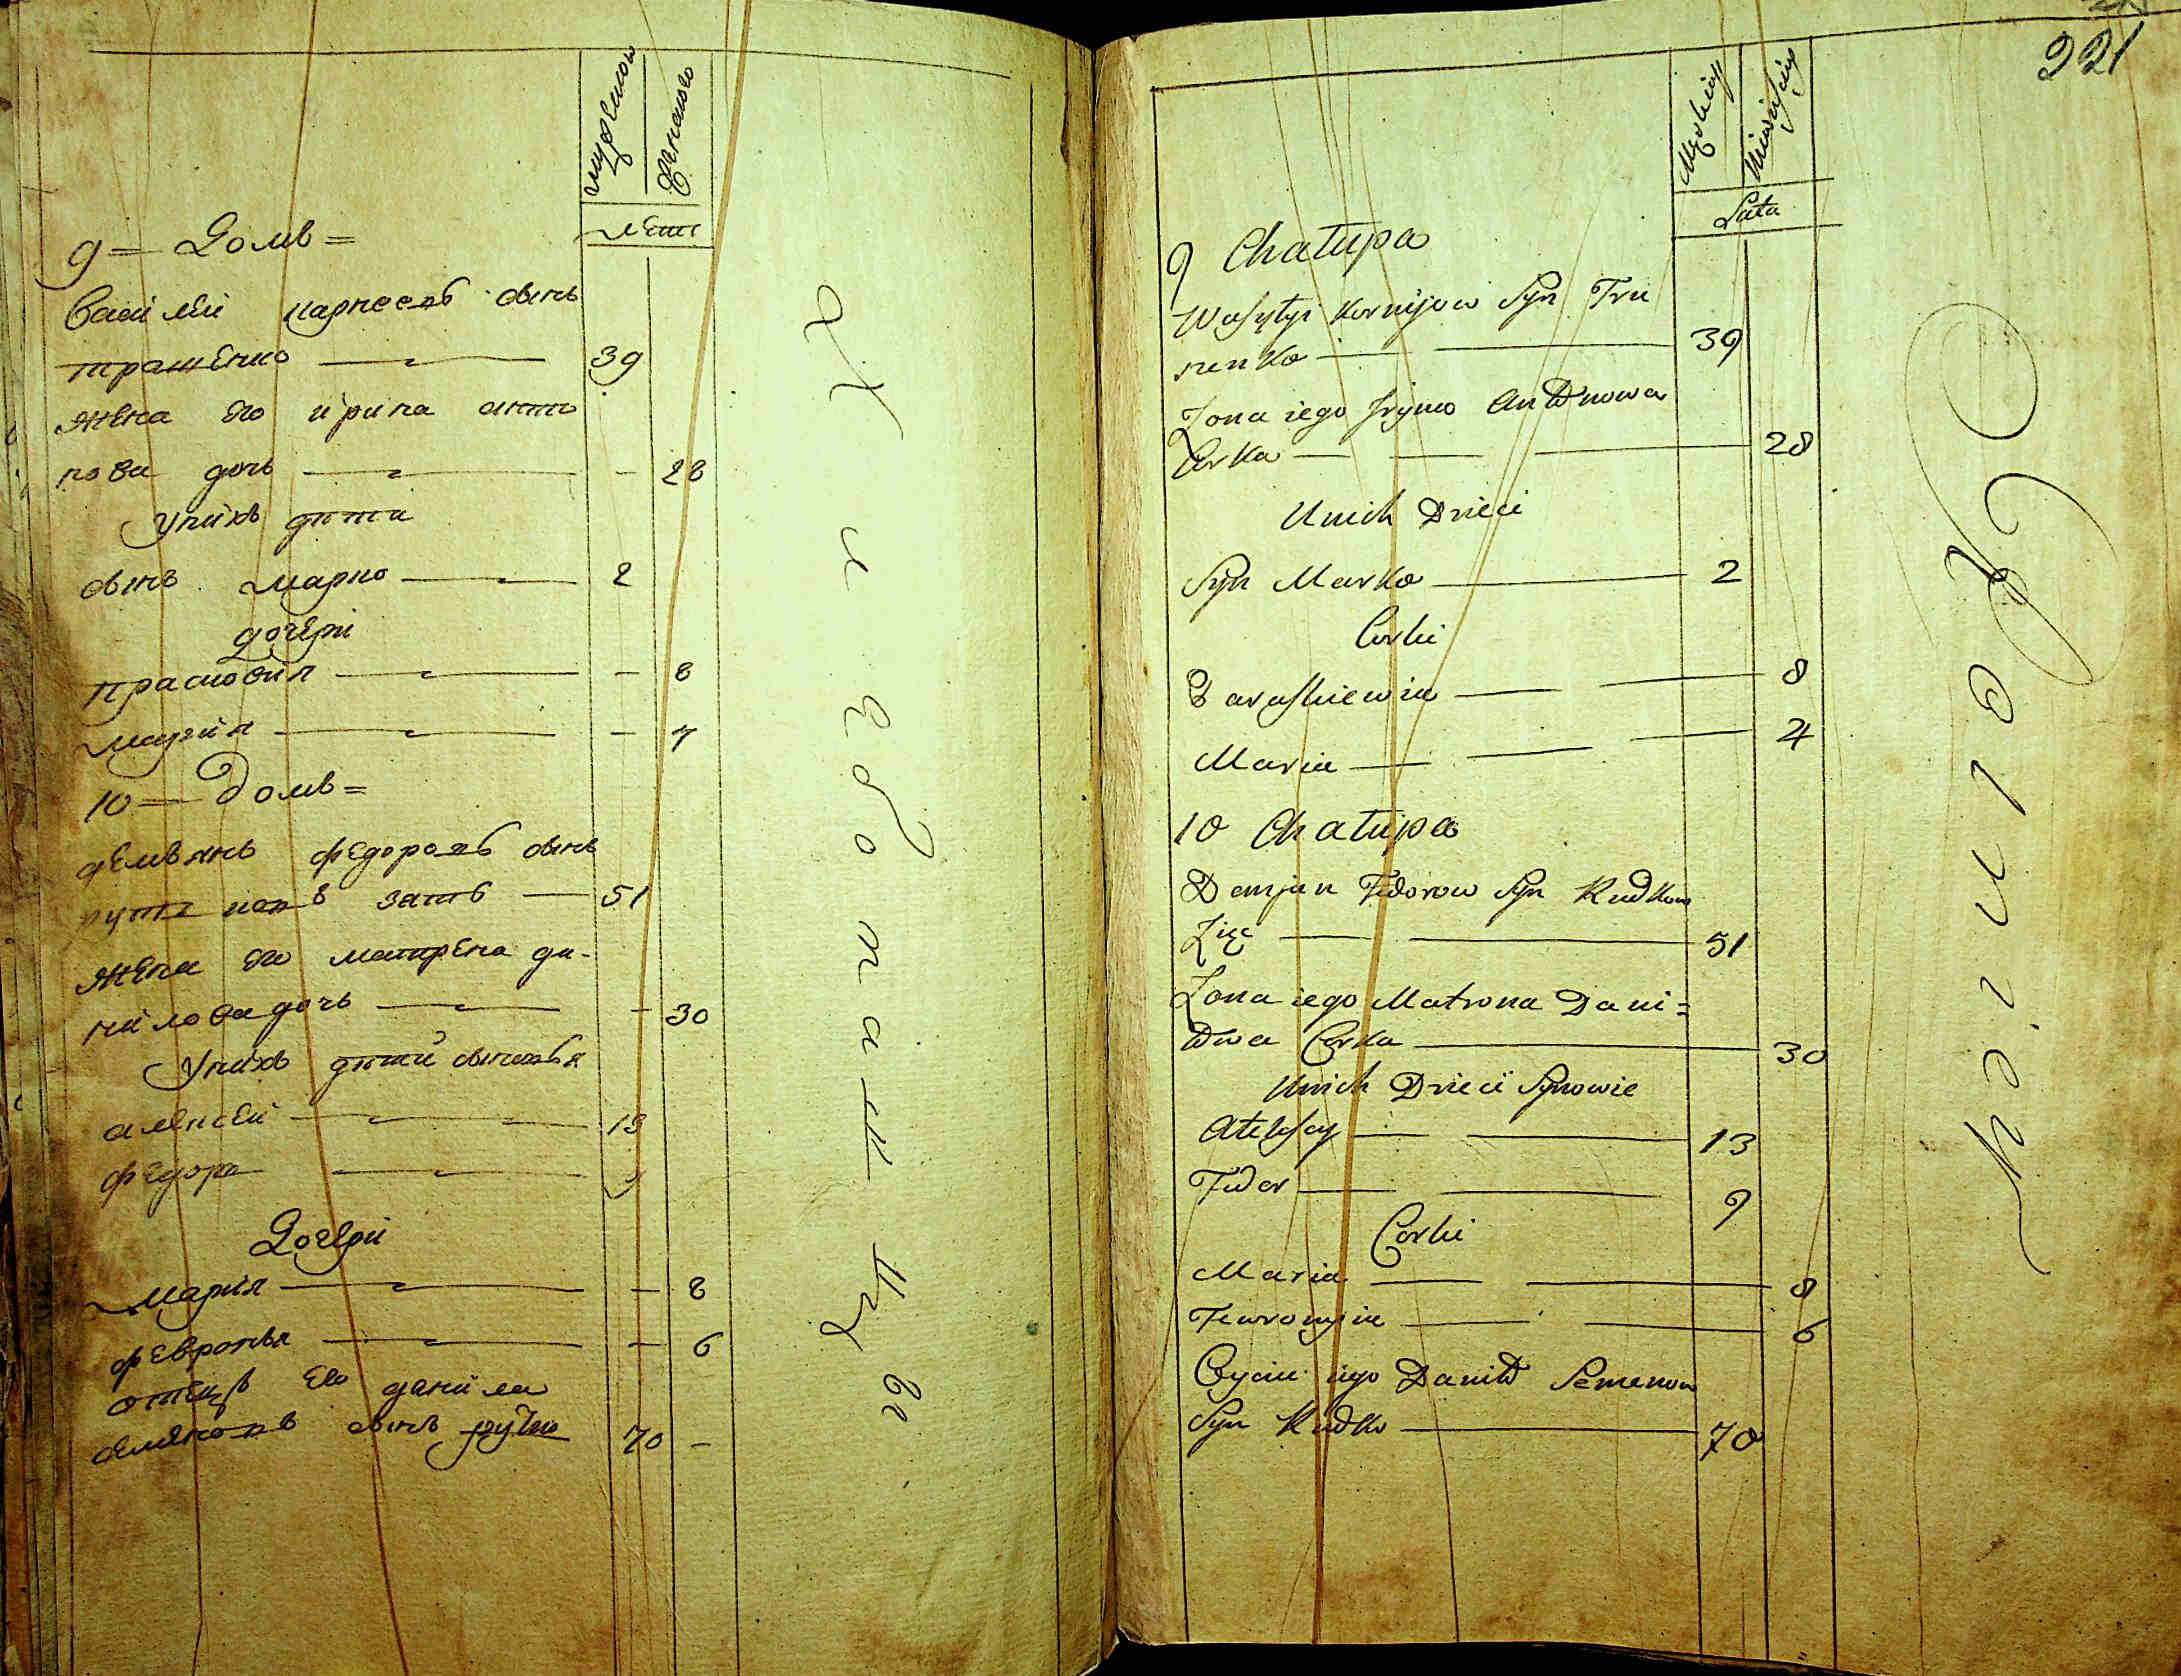 мужеска
женска
лета
9 = Домъ =
Васи́лей карнеевъ сынъ
трашенко 39
жена его ири́на анто
нова дочь - 28
У ни́хъ дѣти
сынъ марко 2
дочери
прасковия - 8
мари́я - 4
10 = Домъ =
демьянъ федоровъ сынъ
зять 51
жена его матрена да-
ни́лова дочь - 30
У ни́хъ дѣти сыновья
алексей 13
федоръ 9
Дочери
Мари́я - 8
февронья - 6
отецъ его дани́ла
семеновъ сынъ рудко 70 -
221
Męskiey
Niewieściey
Lata
9 Chałupa
Wasyłyi Kornijow Syn Tru
szenko 39
Żona iego Iryna Antonowa
Corka 28
U nich Dzieci
Syn Marko 2
Corki
Paraskiewia 8
Maria 4
10 Chałupa
Demjan Fedorow Syn Rudkow
Zięć 51
Żona iego Matrona Dani=
łowa Corka 30
U nich Dzieci Synowie
Ałeksey 13
Fedor 9
Corki
Maria 8
Fewronyia 6
Oyciec iego Daniło Semenow
Syn Rudko 70